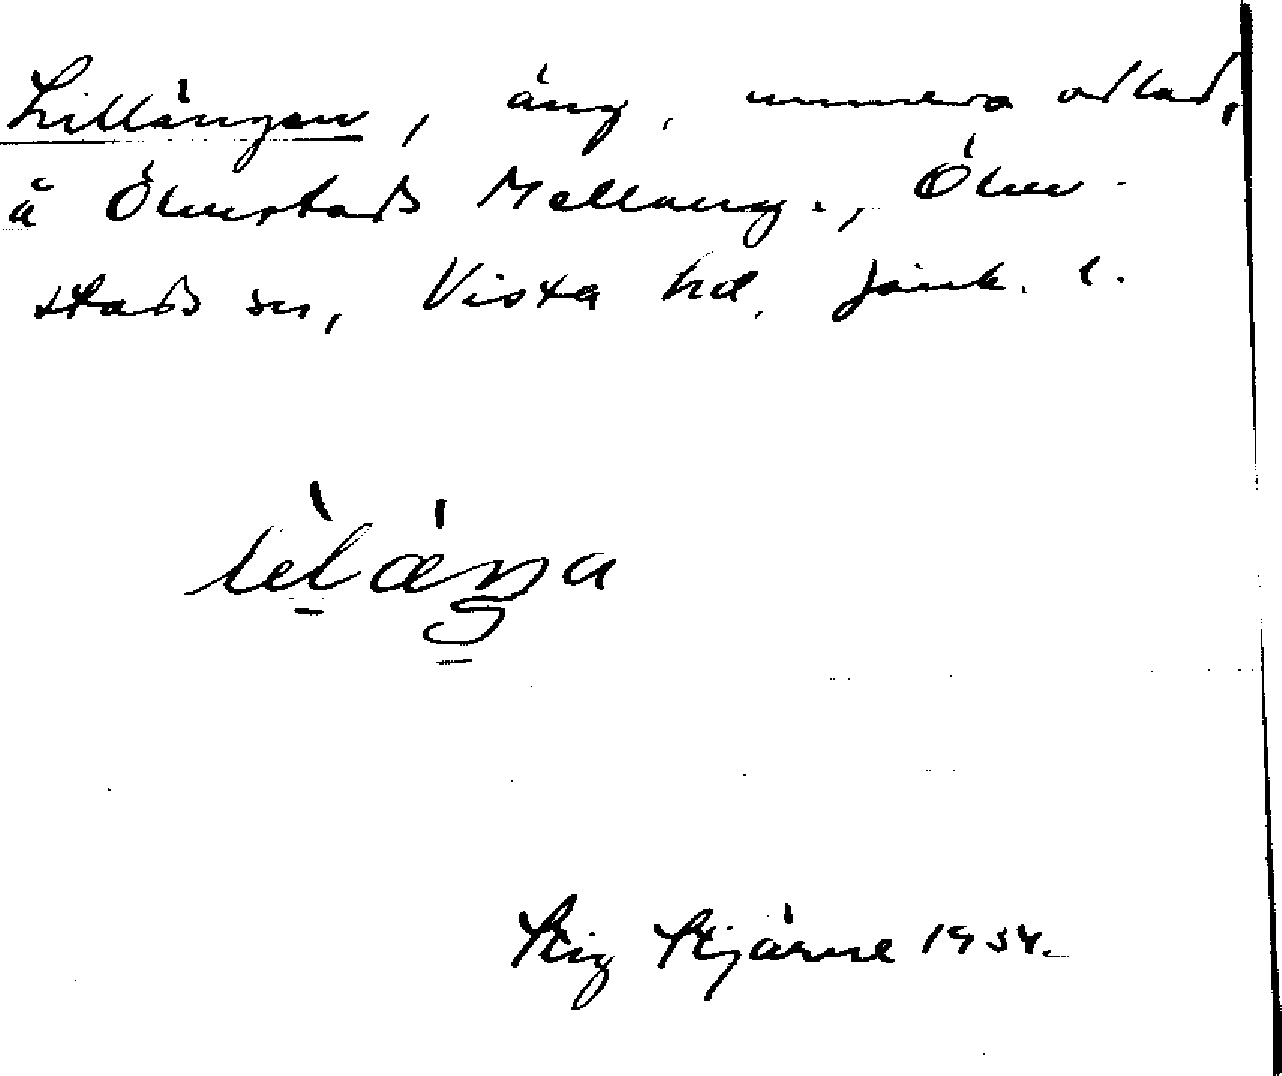 Lillängen, äng, numera odlad,
å Ölmstads Mellang., Ölm-
stads sn, Vista hd. Jönk. l.
lèlæ̀ŋa
Stig Stjärne 1934.